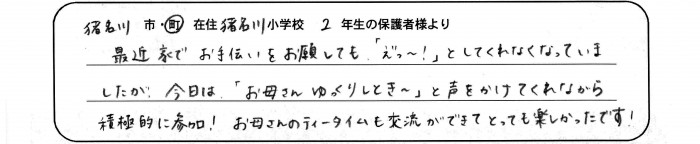 猪名川 市・町 在住 猪名川小学校 2 年生の保護者様より
最近家でお手伝いをお願しても、「えっ〜!」としてくれなくなっていま
したが、今日は、「お母さんゆっくりしとき〜」と声をかけてくれながら
積極的に参加! お母さんのティータイムも交流ができてとっても楽しかったです!